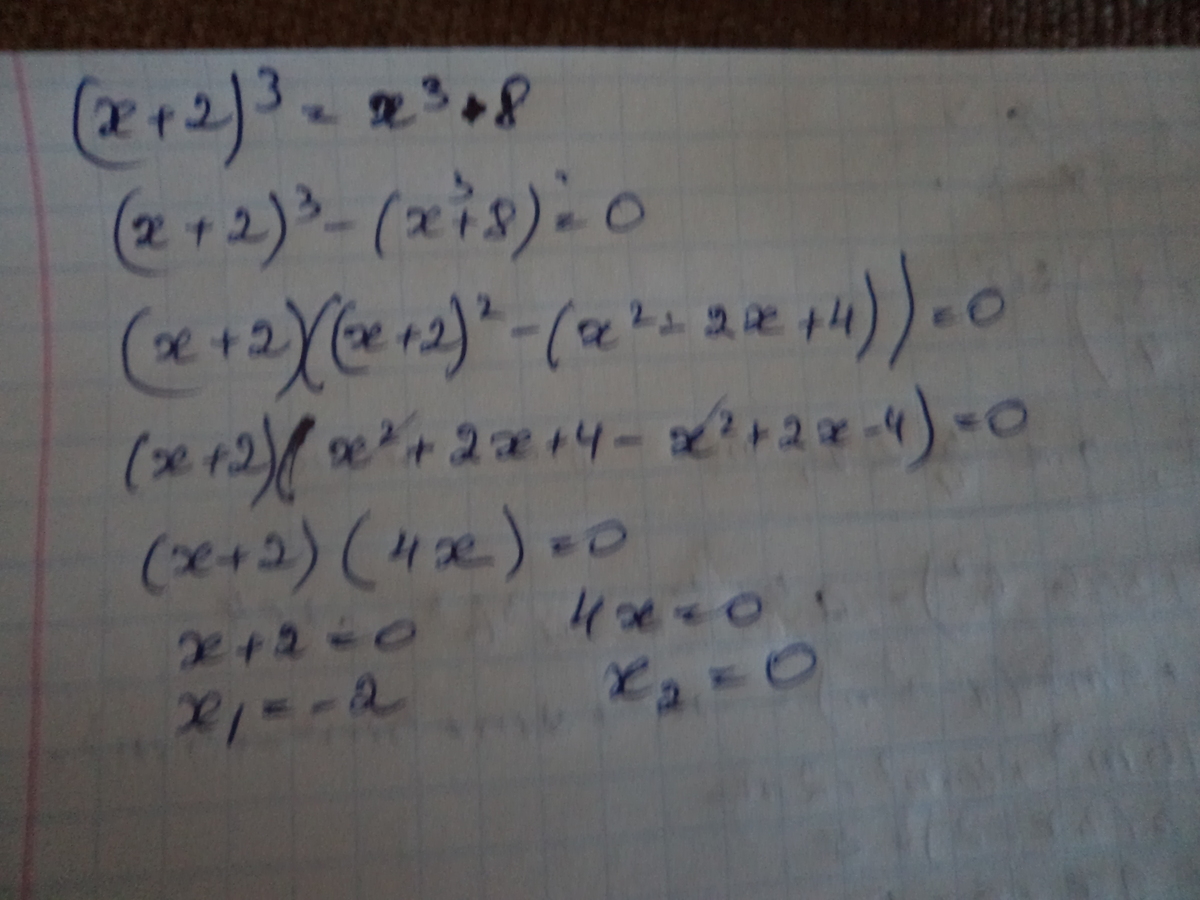 (x+2)³ = x³+8
(x+2)³-(x³+8)=0
(x+2)((x+2)²-(x²-2x+4))=0
(x+2)(x²+2x+4-x²+2x-4)=0
(x+2)(4x)=0
x+2=0 4x=0
x₁=-2 x₂=0